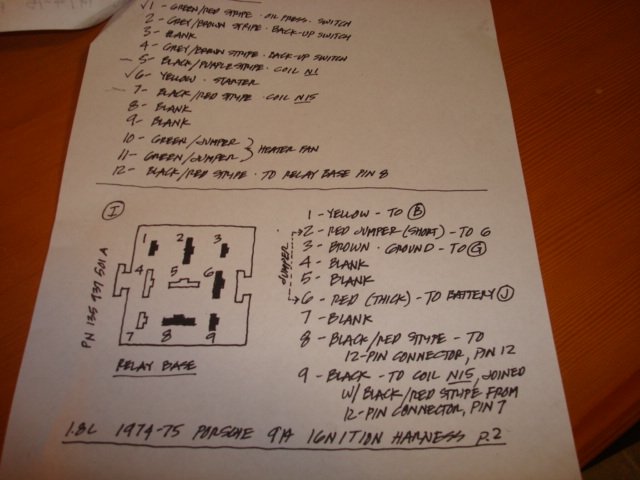 √1 - GREEN/RED STRIPE · OIL PRESS. SWITCH
2 - GREY/BROWN STRIPE · BACK-UP SWITCH
3 - BLANK
4 - GREY/BROWN STRIPE · BACK-UP SWITCH
- 5 - BLACK/PURPLE STRIPE · COIL N1
√6 - YELLOW · STARTER
- 7 - BLACK/RED STRIPE · COIL N15
8 - BLANK
9 - BLANK
10 - GREEN/JUMPER
11 - GREEN/JUMPER } HEATER FAN
12 - BLACK/RED STRIPE · TO RELAY BASE PIN 8
I
PN 135 937 501 A
1 2 3
4 5 6
7 8 9
RELAY BASE
JUMPER
1 - YELLOW - TO B
2 - RED JUMPER (SHORT) - TO 6
3 - BROWN · GROUND - TO G
4 - BLANK
5 - BLANK
6 - RED (THICK) - TO BATTERY J
7 - BLANK
8 - BLACK/RED STRIPE - TO
12-PIN CONNECTOR, PIN 12
9 - BLACK - TO COIL N15, JOINED
W/ BLACK/RED STRIPE FROM
12-PIN CONNECTOR, PIN 7
1.8L 1974-75 PORSCHE 914 IGNITION HARNESS p.2